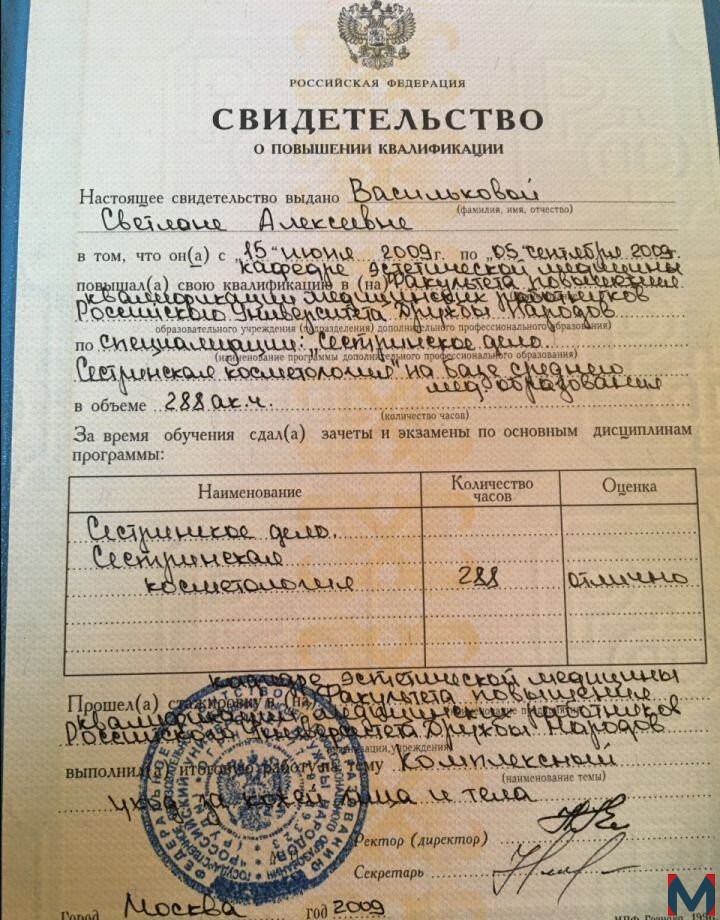 РОССИЙСКАЯ ФЕДЕРАЦИЯ
СВИДЕТЕЛЬСТВО
О ПОВЫШЕНИИ КВАЛИФИКАЦИИ
Настоящее свидетельство выдано Васильковой
(фамилия, имя, отчество)
Светлане Алексеевне
в том, что он(а) с „15“ июня 2009г. по „05 сентября 2009г.
кафедре эстетической медицины
повышал(а) свою квалификацию в (на) Факультета повышения
квалификации медицинских работников
Российского Университета Дружбы Народов
образовательного учреждения (подразделения) дополнительного профессионального образования)
по специализации: „Сестринское дело.
(наименование программы дополнительного профессионального образования)
Сестринская косметология" на базе среднего
мед. образования
в объеме 288 ак.ч.
(количество часов)
За время обучения сдал(а) зачеты и экзамены по основным дисциплинам
программы:
Наименование Количество часов Оценка
Сестринское дело.
Сестринская
косметология 288 отлично
кафедре эстетической медицины
Прошел(а) стажировку в (на) Факультета повышения
квалификации медицинских работников
Российского Университета Дружбы Народов
организации, учреждения)
выполнил(а) итоговую работу на тему Комплексный
(наименование темы)
уход за кожей лица и тела
Ректор (директор)
Секретарь
Город Москва год 2009
М